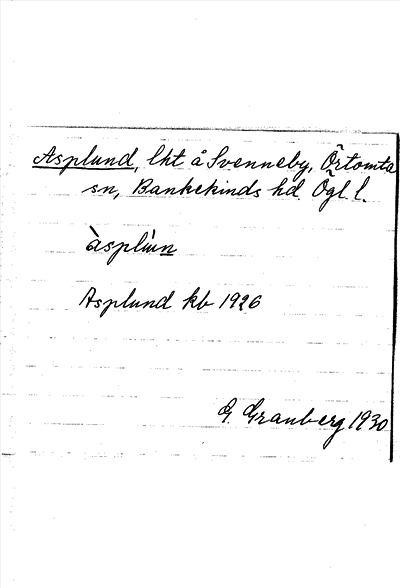 Asplund, lht å Svenneby, Örtomta
sn, Bankekinds hd. Ögl. l.
àsplùn
Asplund kb 1926
G. Granberg 1930